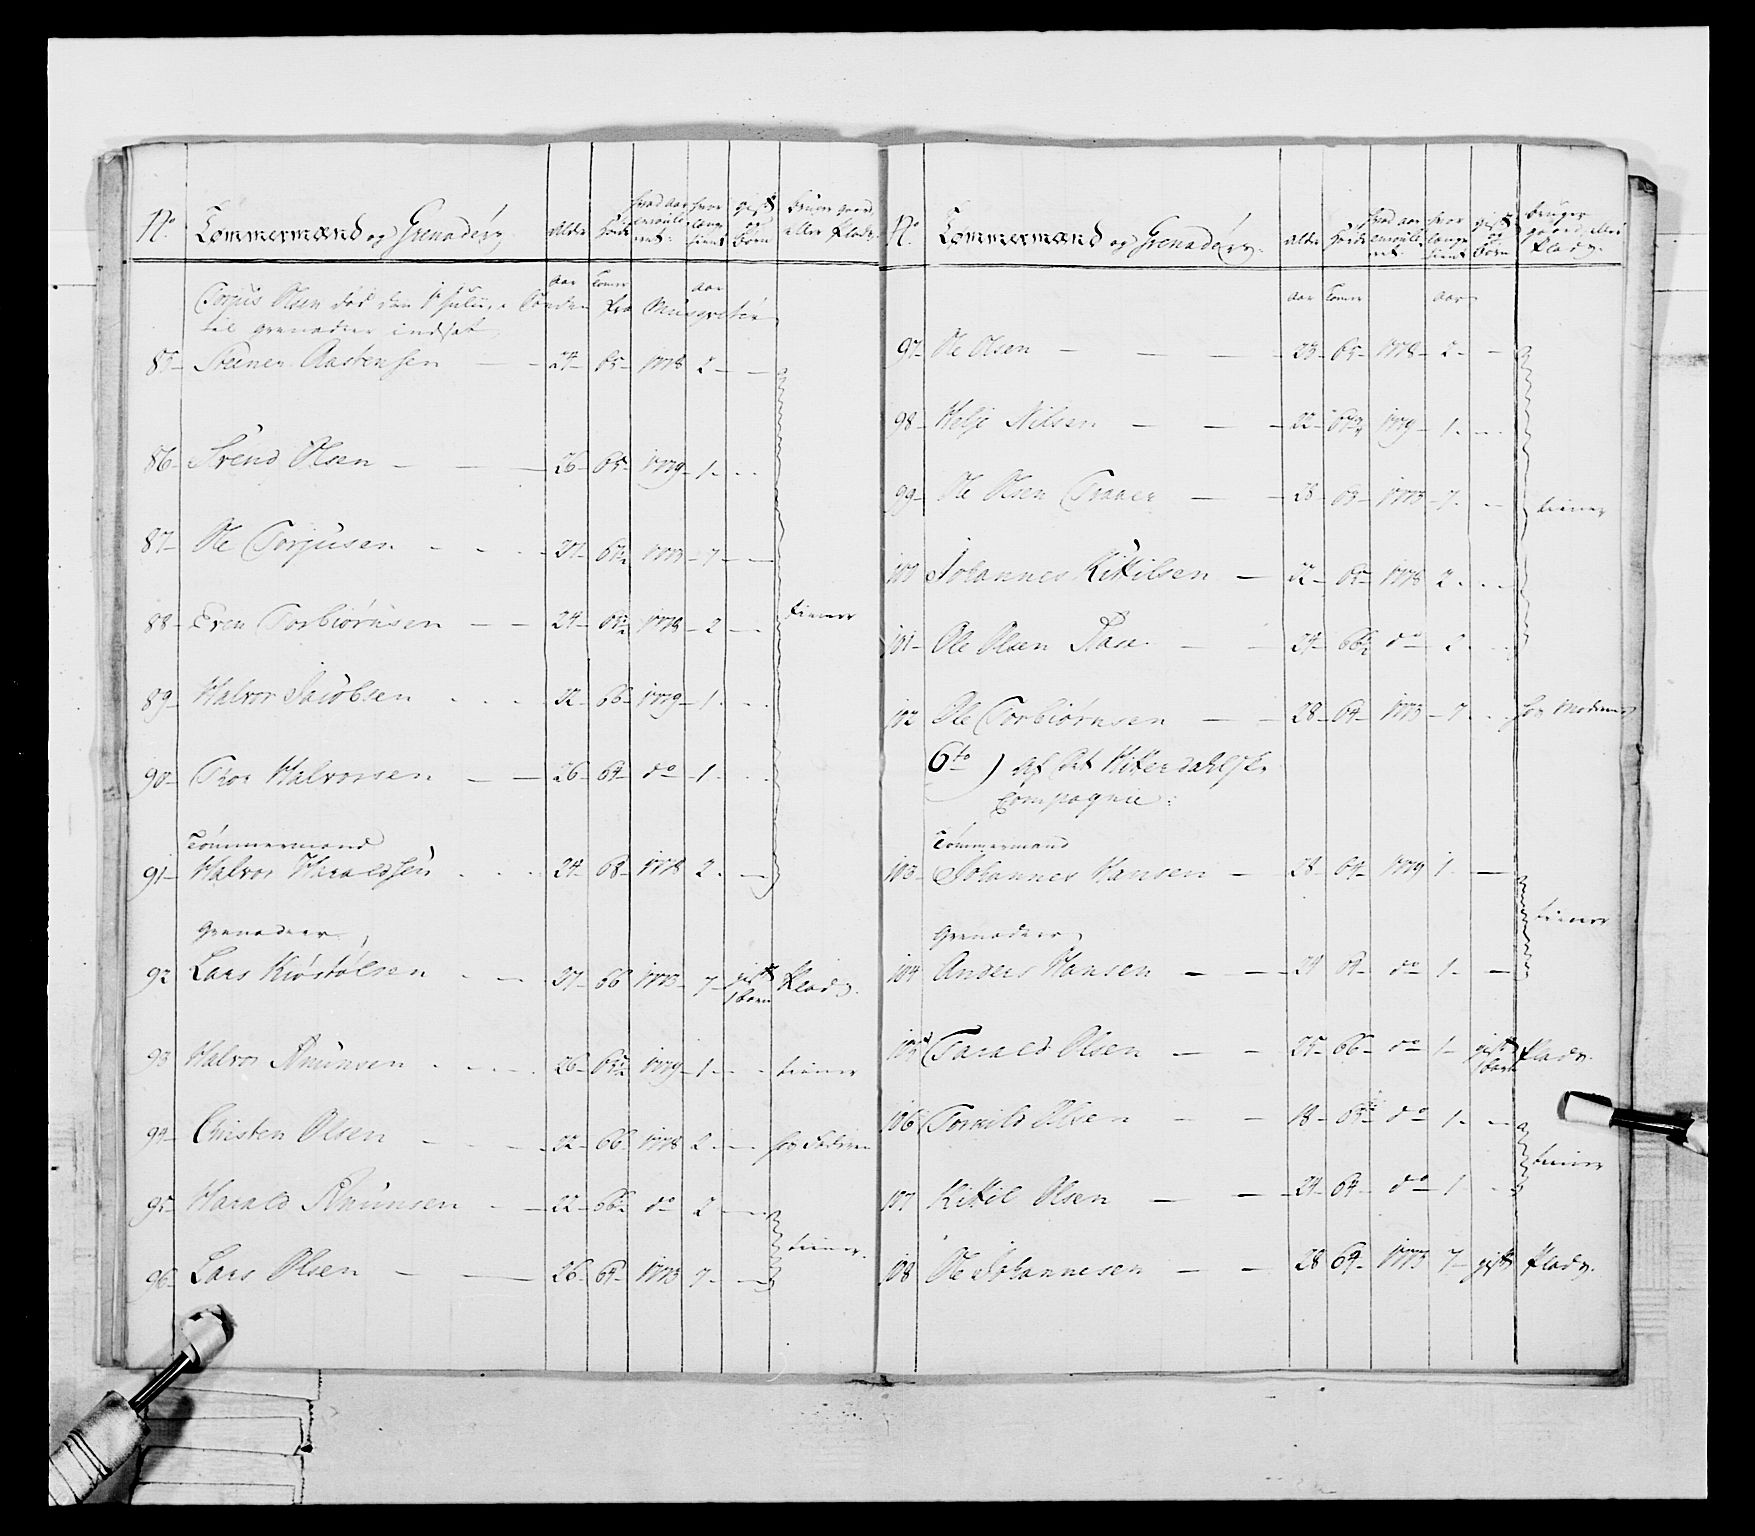 No. Tømmermænd og Grenadérer alder høide hvad aar enroulleret. hvor længe tient gift og børn bruger gaard, eller Plads.
aar Tomer aar
Torjus Olsen død den 1 Julii,
til grenadeer indsat
85 Steener Aastensen — 24 65 1778 2 —
86 Svend Olsen — 26 65 1779 1
87 Ole Torjusen 1773 7 —
88 Even Torbiørnsen — 24 1778 2 —
tiener
89 Halvor Jacobsen 66 1779 1
90 Thor Halvorsen — 26 64 do 1
Tømmermand
91 Halvor Haraldsen 24 68 1778 2 —
Grenadeer
92 Lars Kiøstolsen 66 1773 7 gift 1 barn Plads.
93 Halvor Amunsen 26 1779 1 tiener
94 Christen Olsen 66 1778 2 —
95 Harald Amunsen 22 66 do 2 —
96 Lars Olsen — 26 64 1773 7 —
tiener
No. Tømmermænd og Grenadérer. alder høide hvad aar enroulleret. hvor længe tient gift og børn bruger gaard, eller Plads.
aar Tomer aar
97 Ole Olsen — 23 65 1778 2 —
98 Helje Nilsen — 22 1779 1
99 Ole Olsen Traaen — 28 1773 7
tiener
100 Johannes Kittilsen — 22 65 1778 2
101 Ole Olsen 24 do 2
102 Ole Torbiørnsen — 28 64 1773 7 hos Moderen
6te) af det Hitterdahlske
Compagnie:
Tømmermand
103 Johannes Hansen — 28 64 1779 1 —
tiener
Grenadeer
104 Anders Hansen — 24 64 do 1 —
105 Tarald Olsen — 25 66 do 1 gift 1 barn Plads.
106 Torkild Olsen — 18 do 1
tiener
107 Kittil Olsen — 24 64 do 1
108 Ole Johannesen — 28 64 1773 7 gift Plads.